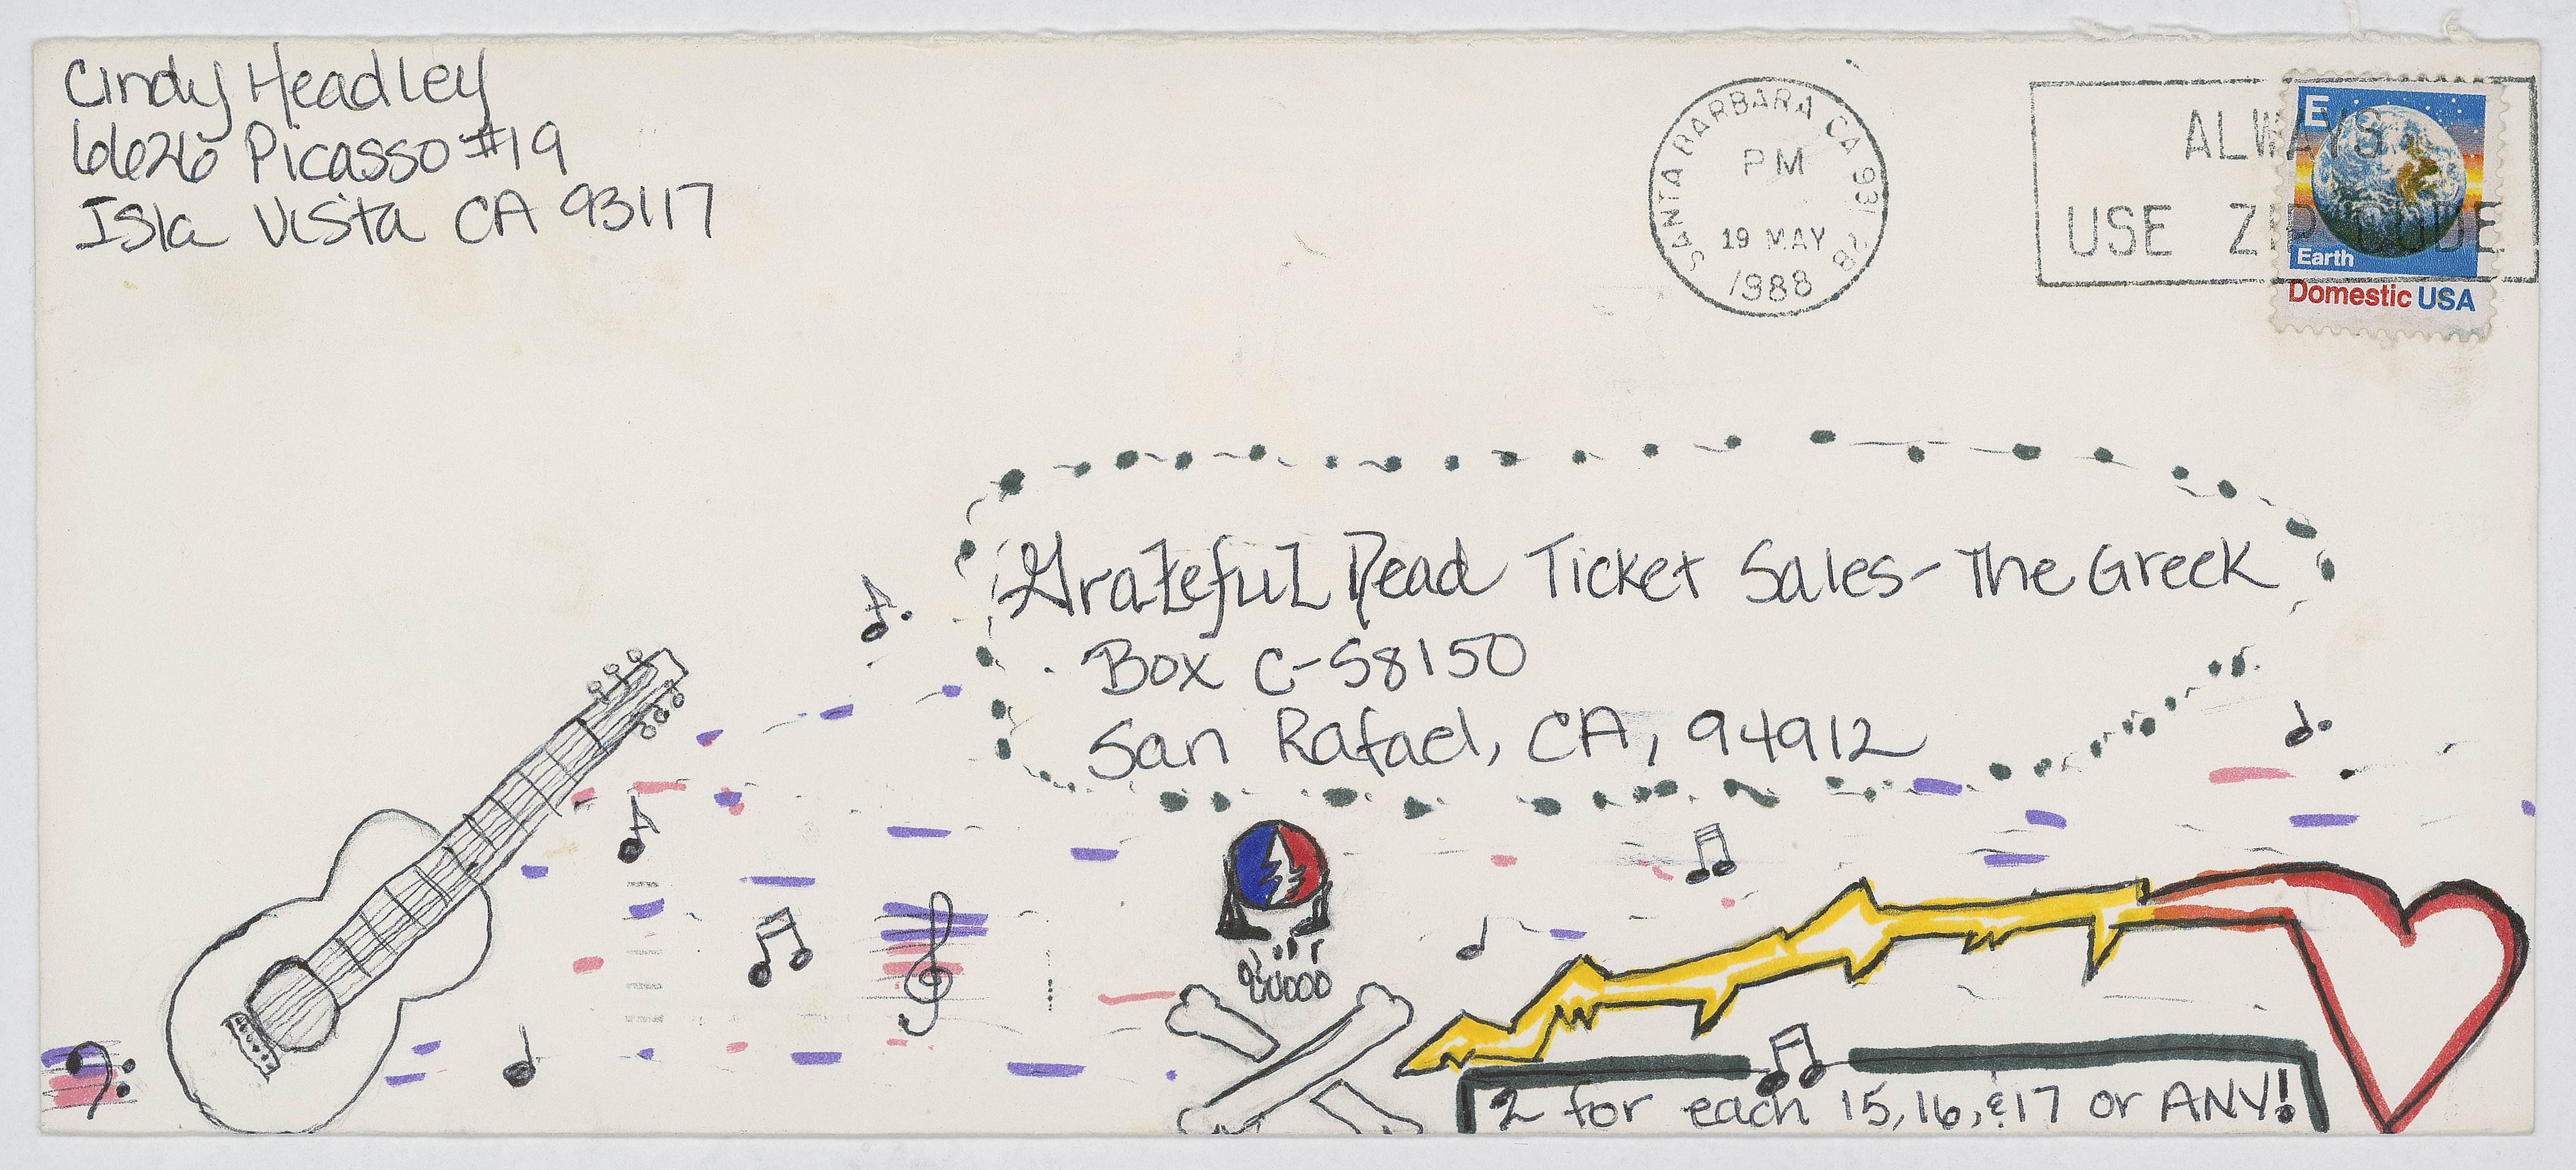 Cindy Headley
6626 Picasso #19
Isla Vista CA 93117
SANTA BARBARA CA 931
PM
19 MAY
1988
ALWAYS
USE ZIP CODE
E
Earth
Domestic USA
Grateful Dead Ticket Sales - The Greek
Box C-58150
San Rafael, CA, 94912
2 for each 15, 16, & 17 or ANY!